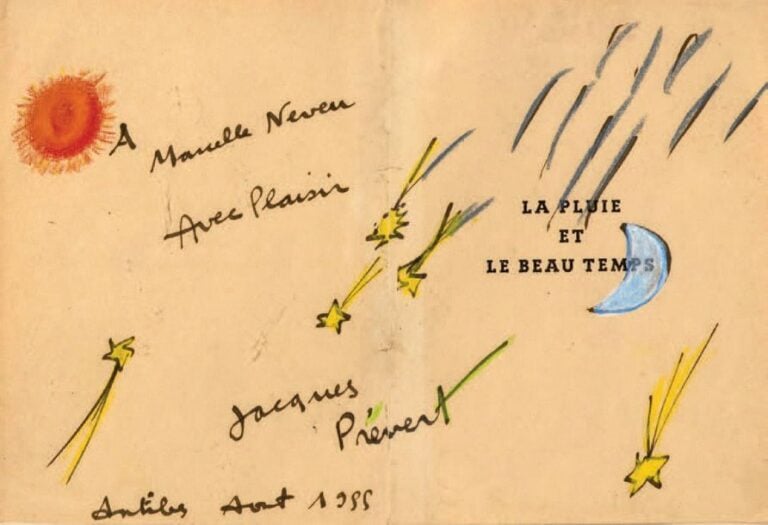 A Marcelle Neveu
Avec Plaisir
Jacques
Prévert
Antibes Aout 1955
LA PLUIE
ET
LE BEAU TEMPS